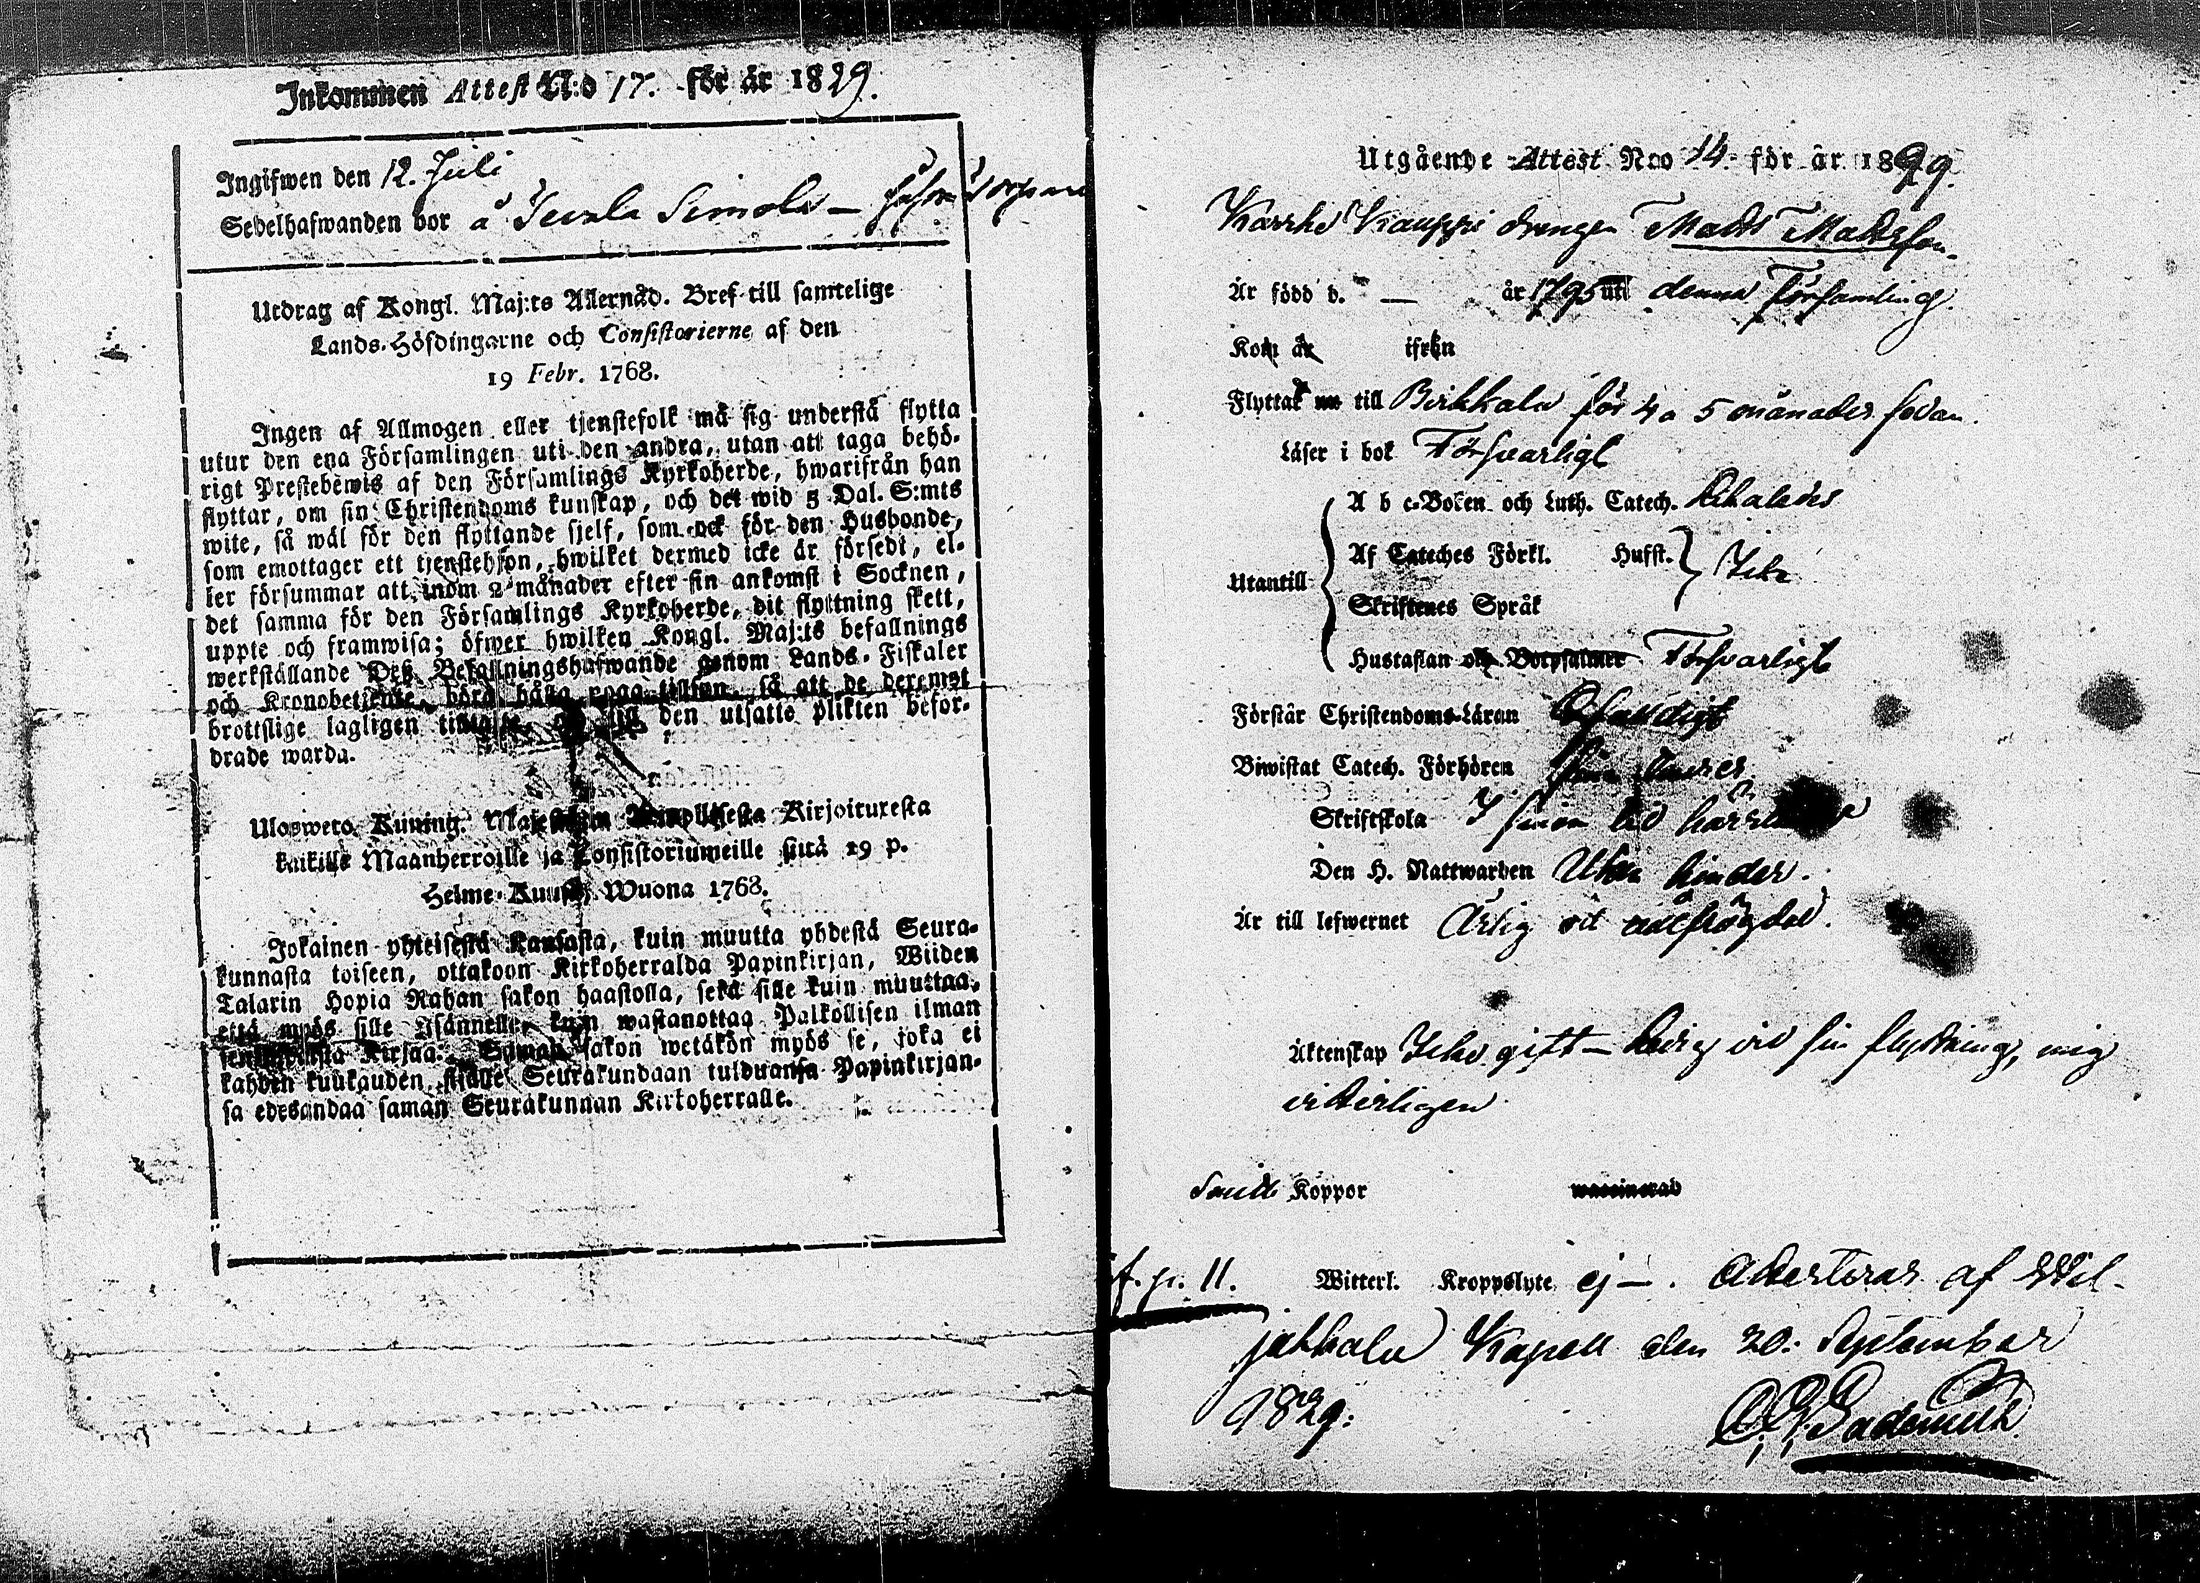 Inkommen Attest N:o 17. för år 1829.
Ingifwen den 12. Juli
Sedelhafwanden bor å Simola —
Utdrag af Kongl. Maj:ts Allernåd. Bref till samtelige
Lands-Höfdingarne och Consistorierne af den
19 Febr. 1768.
Ingen af Allmogen eller tjenstefolk må sig understå flytta
utur den ena Församlingen uti den andra, utan att taga behö-
rigt Prestebewis af den Församlings Kyrkoherde, hwarifrån han
flyttar, om sin Christendoms kunskap, och det wid 5 Dal. S:mts
wite, så wäl för den flyttande sjelf, som ock för den Husbonde,
som emottager ett tjenstehjon, hwilket dermed icke är försedt, el-
ler försummar att inom 2 månader efter sin ankomst i Socknen,
det samma för den Församlings Kyrkoherde, dit flyttning skett,
uppte och framwisa; öfwer hwilken Kongl. Maj:ts befallnings
werkställande Deß Befallningshafwande genom Lands-Fiskaler
och Kronobetjente, böra hålla noga tillsyn, så att de deremot
brottslige lagligen den utsatte plikten befor-
drade warda.
Ulosweto Kuning. Kirjoituxesta
kaikille Maanherroille ja Consistoriumeille siitä 19 p.
Helme-Kuusa, Wuona 1768.
Jokainen yhteisestä Kansasta, kuin muutta yhdestä Seura-
kunnasta toiseen, ottakoon Kirkoherralda Papinkirjan, Wiiden
Talarin Hopia Rahan sakon haastolla, sekä sille kuin muuttaa,
että myös sille Isännelle, kuin wastanottaa Palkollisen ilman
Kirjaa. Saman sakon wetäkön myös se, joka ei
kahden kuukauden sisälle Seurakundaan tulduansa Papinkirjan-
sa edesandaa saman Seurakunnan Kirkoherralle.
Utgående Attest N:o 14 för år 1829.
Kauppi drengen Matts Mattsson.
Är född d. — år 1795 uti denna Församling.
Kom år ifrån
Flyttar till Birkkala för 4 a 5 månader sedan.
Läser i bok Försvarligt
A b c-Boken och Luth. Catech.
Af Cateches Förkl. Hufst.
Utantill
Skriftenes Språk
Hustaflan och Botpsalmer Försvarligt
Förstår Christendoms-Läran
Biwistat Catech. Förhören
Skriftskola I sin tid
Den H. Nattwarden Utan hinder.
Är till lefwernet Ärlig och
Äktenskap Icke gift — ledig vid sin flyttning, mig
veterligen
Koppor waccinerad
f. p. 11. Witterl. Kroppslyte ej —. Attesteras af Wil-
jakkala Kapell den 20. September
1829.